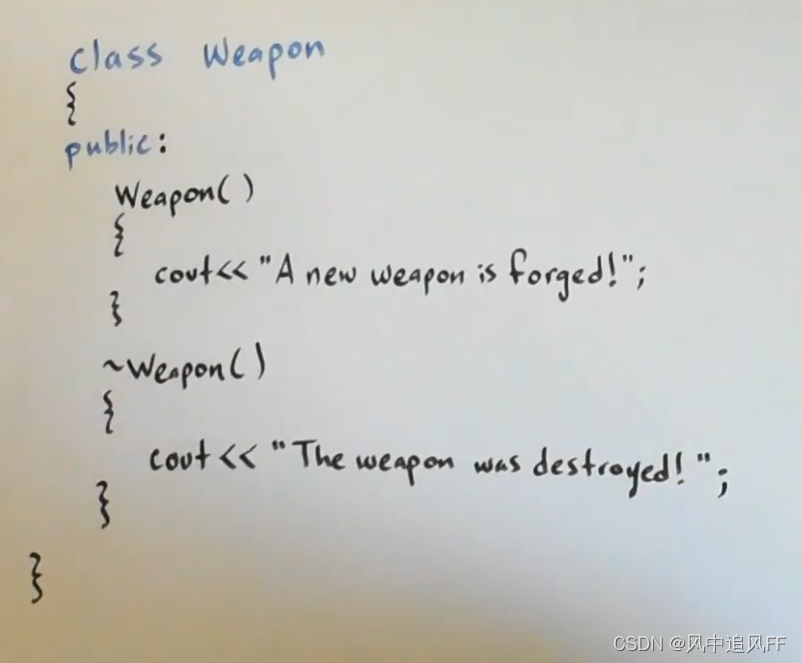 class Weapon
{
public:
Weapon()
{
cout<< "A new weapon is forged!";
}
~Weapon()
{
cout << "The weapon was destroyed! ";
}
}
CSDN @风中追风FF